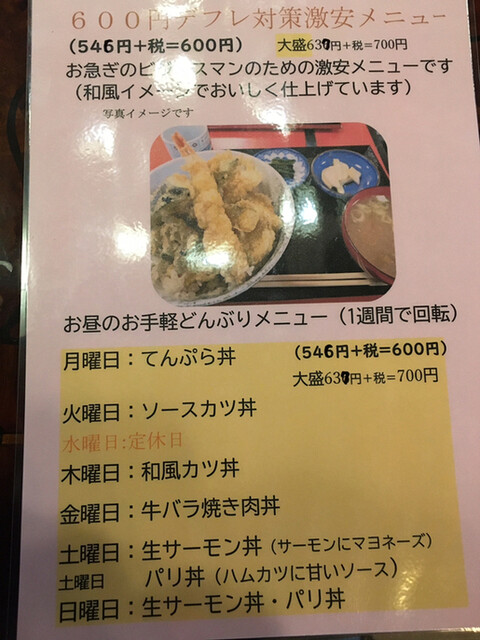 600円デフレ対策激安メニュー
(546円+税=600円) 大盛637円+税=700円
お急ぎのビジネスマンのための激安メニューです
(和風イメージでおいしく仕上げています)
写真イメージです
お昼のお手軽どんぶりメニュー(1週間で回転)
月曜日:てんぷら丼 (546円+税=600円)
大盛637円+税=700円
火曜日:ソースカツ丼
水曜日:定休日
木曜日:和風カツ丼
金曜日:牛バラ焼き肉丼
土曜日:生サーモン丼(サーモンにマヨネーズ)
土曜日 パリ丼(ハムカツに甘いソース)
日曜日:生サーモン丼・パリ丼